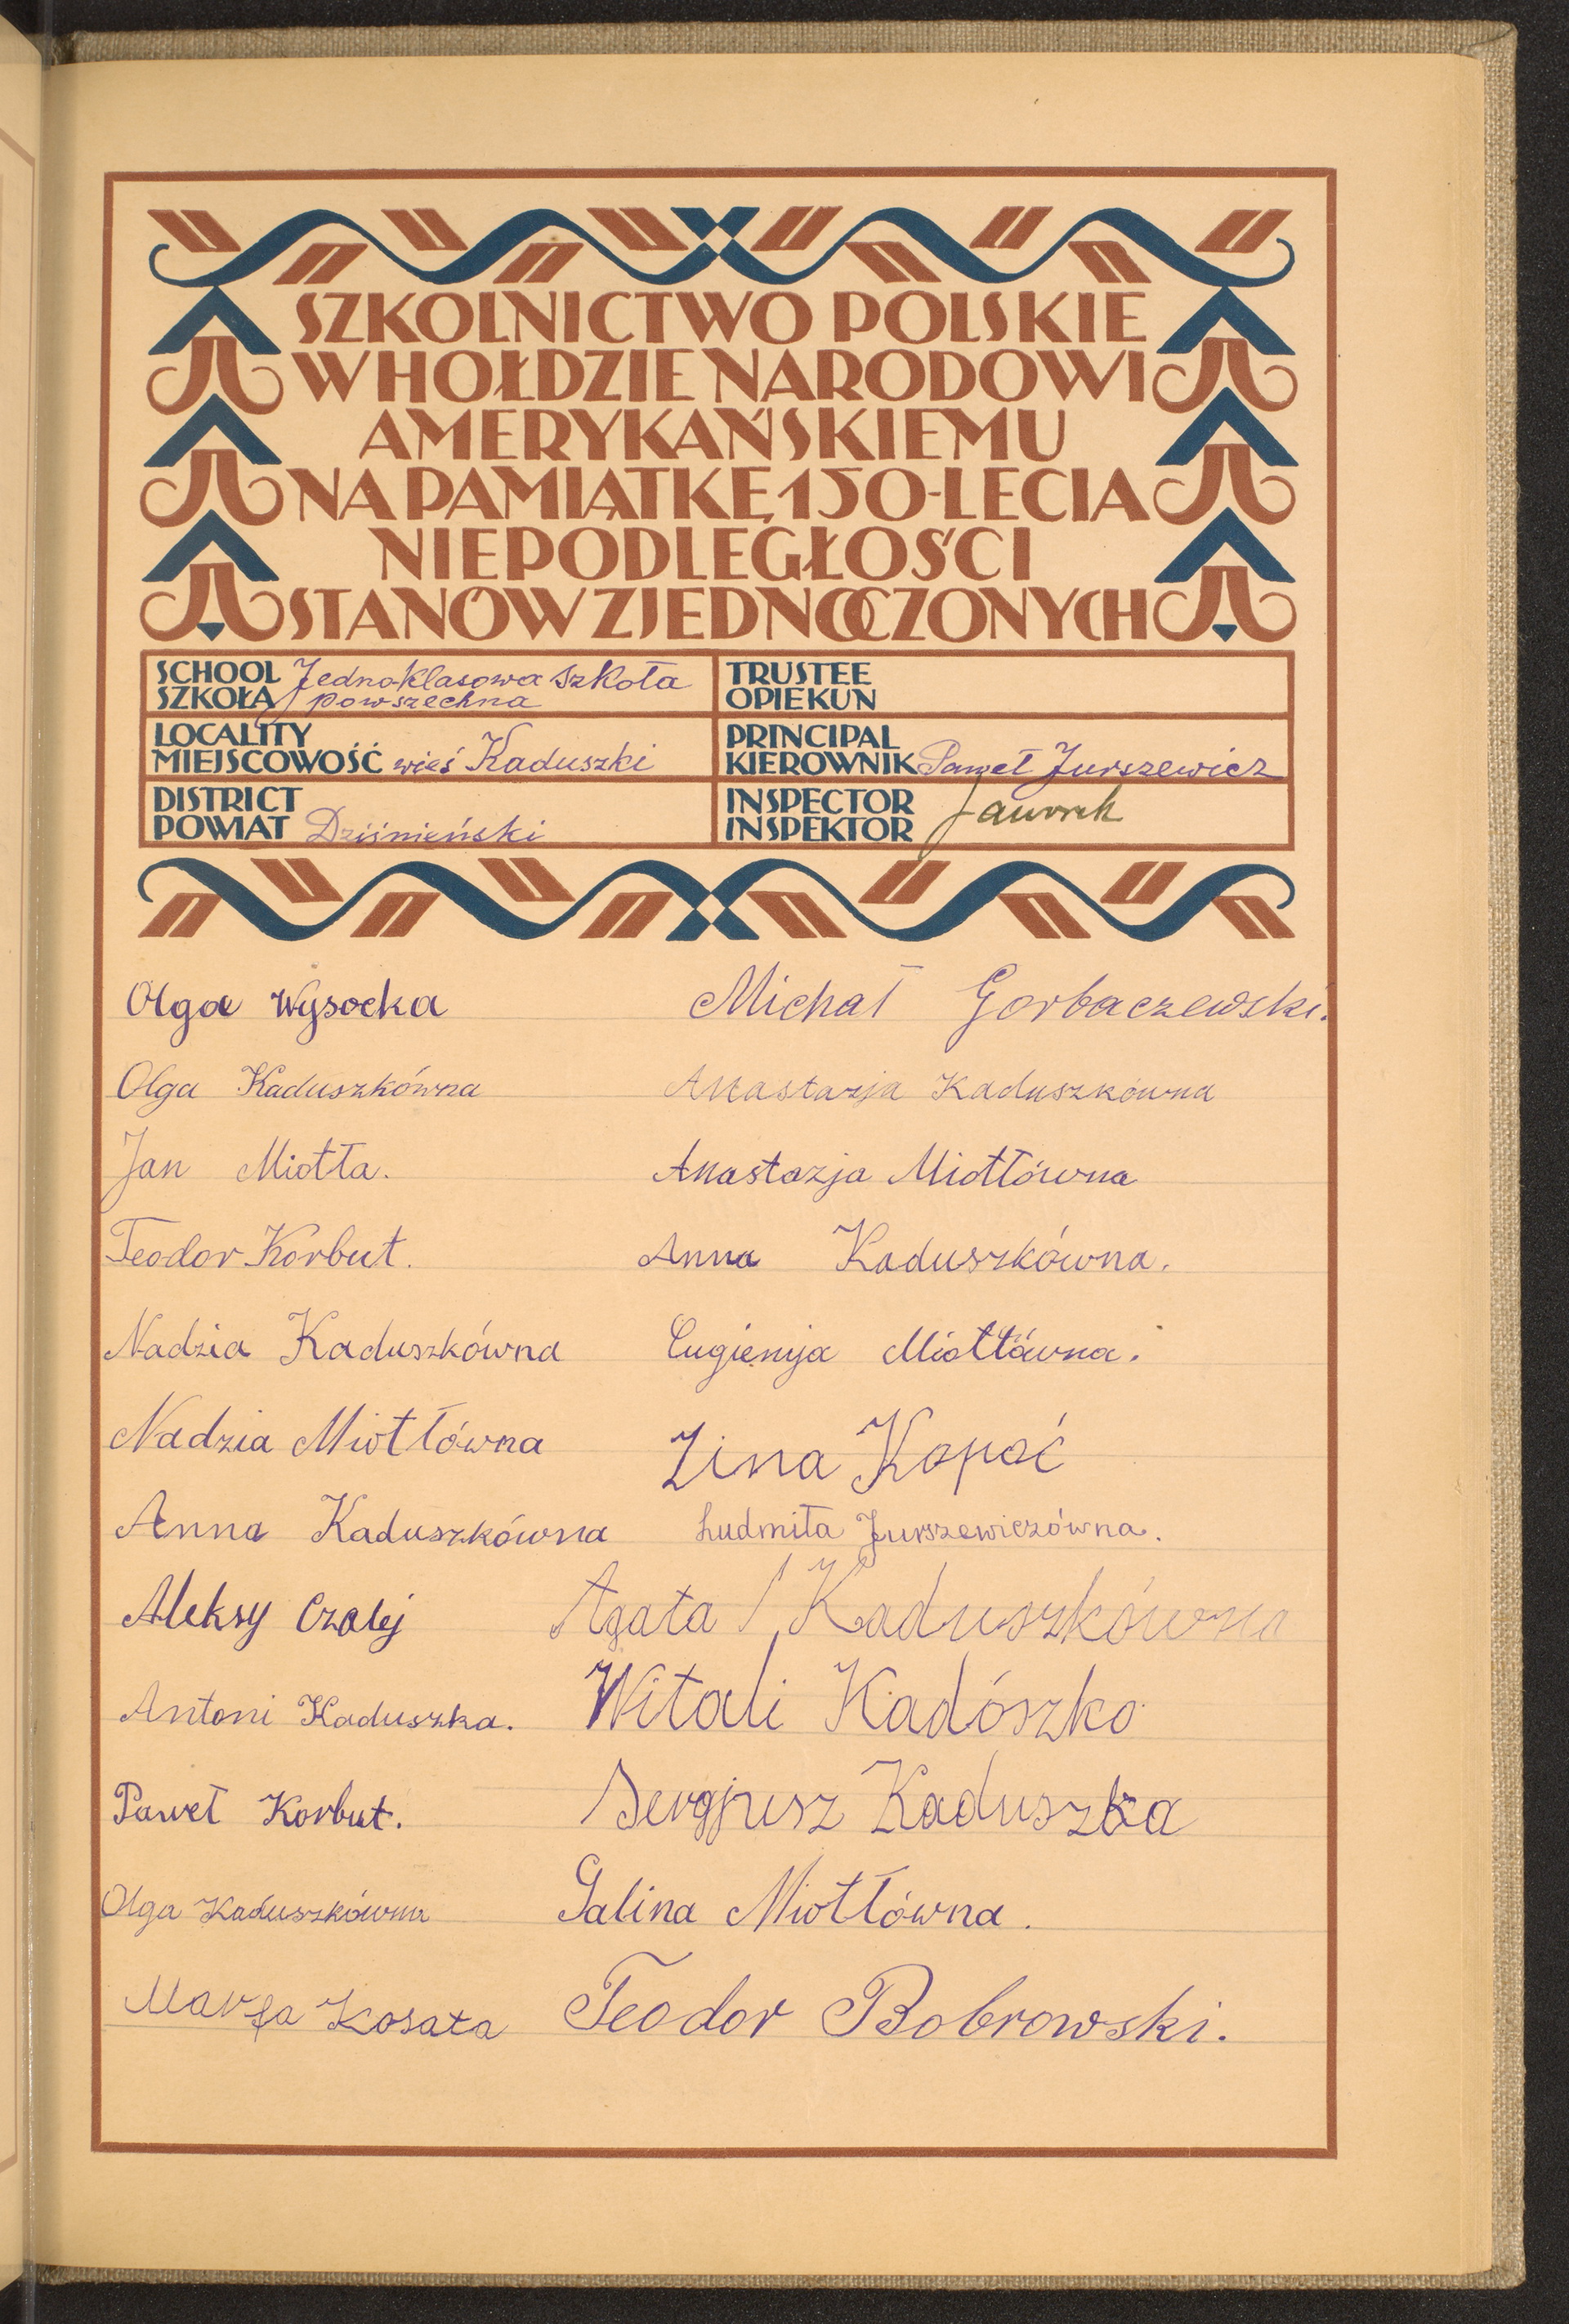 SZKOLNICTWO POLSKIE
W HOŁDZIE NARODOWI
AMERYKAŃSKIEMU
NA PAMIĄTKĘ 150-LECIA
NIEPODLEGŁOŚCI
STANÓW ZJEDNOCZONYCH
SCHOOL SZKOŁA Jednoklasowa szkoła
powszechna
TRUSTEE
OPIEKUN
LOCALITY
MIEJSCOWOŚĆ wieś Kaduszki
PRINCIPAL
KIEROWNIK Paweł Jurszewicz
DISTRICT
POWIAT Dziśnieński
INSPECTOR
INSPEKTOR Jaworek
Olga Wysocka
Michał Gorbaczewski.
Olga Kaduszkówna
Anastazja Kaduszkówna
Jan Miotła.
Anastazja Miotłówna
Teodor Korbut.
Anna Kaduszkówna.
Nadzia Kaduszkówna
Eugienija Miotłówna.
Nadzia Miotłówna
Zina Kopać
Anna Kaduszkówna
Ludmiła Jurszewiczówna.
Aleksy Czalej
Agata Kaduszkówna
Antoni Kaduszka.
Witali Kadószko
Paweł Korbut.
Sergjusz Kaduszka
Olga Kaduszkówna
Galina Miotłówna.
Marfa Kosata
Teodor Bobrowski.